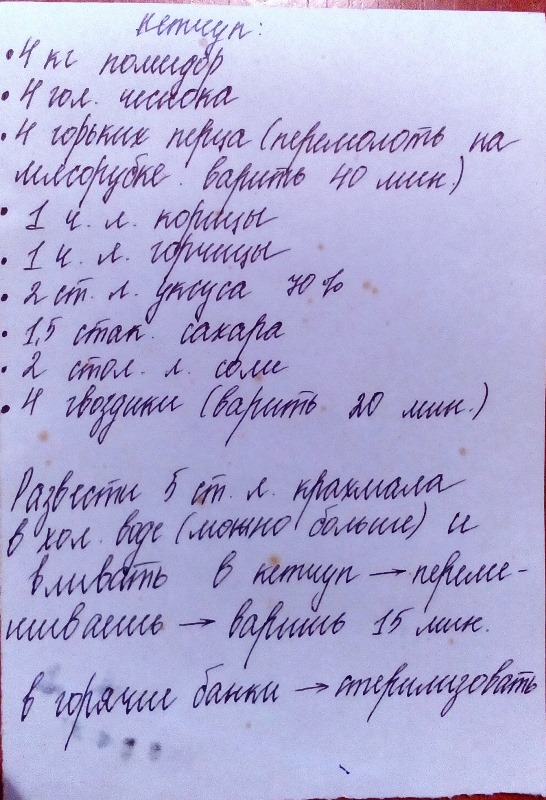 кетчуп:
• 4 кг помидор
• 4 гол. чеснока
• 4 горьких перца (перемолоть на
мясорубке. варить 40 мин.)
• 1 ч. л. корицы
• 1 ч. л. горчицы
• 2 ст. л. уксуса 70%
• 1,5 стак. сахара
• 2 стол. л. соли
• 4 гвоздики (варить 20 мин.)
Развести 5 ст. л. крахмала
в хол. воде (можно больше) и
вливать в кетчуп → переме-
шиваешь → варишь 15 мин.
в горячие банки → стерилизовать